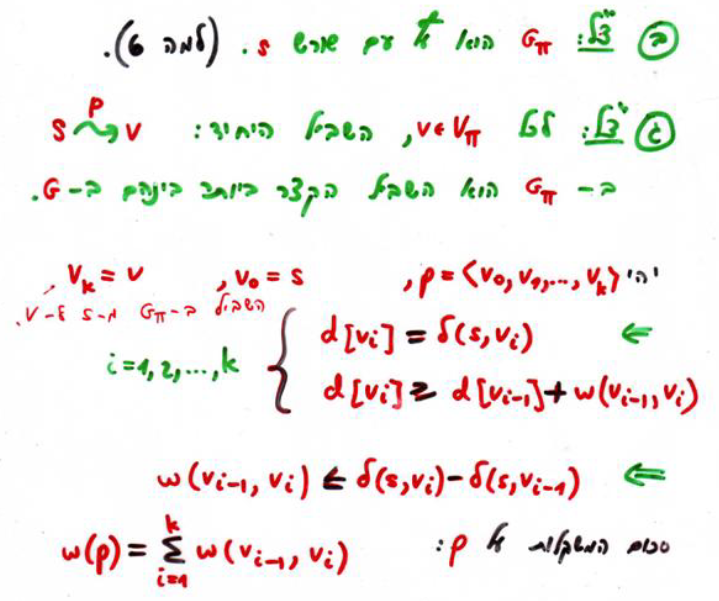 ב צ"ל: G_π הוא עץ עם שורש s. (למה 6).
ג צ"ל: לכל v∈V_π, השביל היחיד: s ⇝^p v
ב- G_π הוא השביל הקצר ביותר בינהם ב-G.
יהי p=⟨v₀,v₁,...,v_k⟩, v₀=s, v_k=v
השביל ב-G_π מ-s ל-v.
⇐ d[v_i] = δ(s,v_i)
i=1,2,...,k
d[v_i] ≥ d[v_{i-1}]+w(v_{i-1},v_i)
⇐ w(v_{i-1}, v_i) ≤ δ(s,v_i)-δ(s,v_{i-1})
סכום המשקלות על p: w(p)= Σ_{i=1}^{k} w(v_{i-1}, v_i)